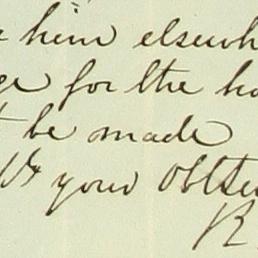 him elsewh
for the
be made
your Obt Se
R